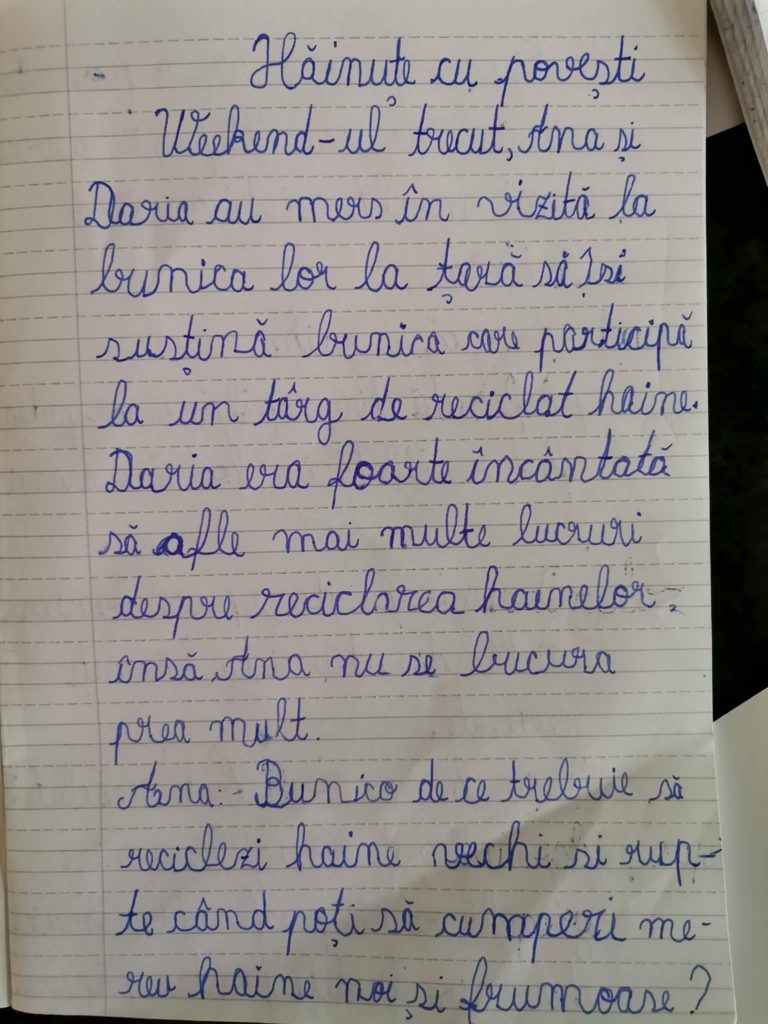 Hăinuțe cu povești
Weekend-ul trecut, Ana și
Daria au mers în vizită la
bunica lor la țară să își
susțină bunica care participă
la un târg de reciclat haine.
Daria era foarte încântată
să afle mai multe lucruri
despre reciclarea hainelor,
însă Ana nu se bucura
prea mult.
Ana: - Bunico de ce trebuie să
reciclezi haine vechi si rup-
te când poți să cumperi me-
reu haine noi și frumoase?